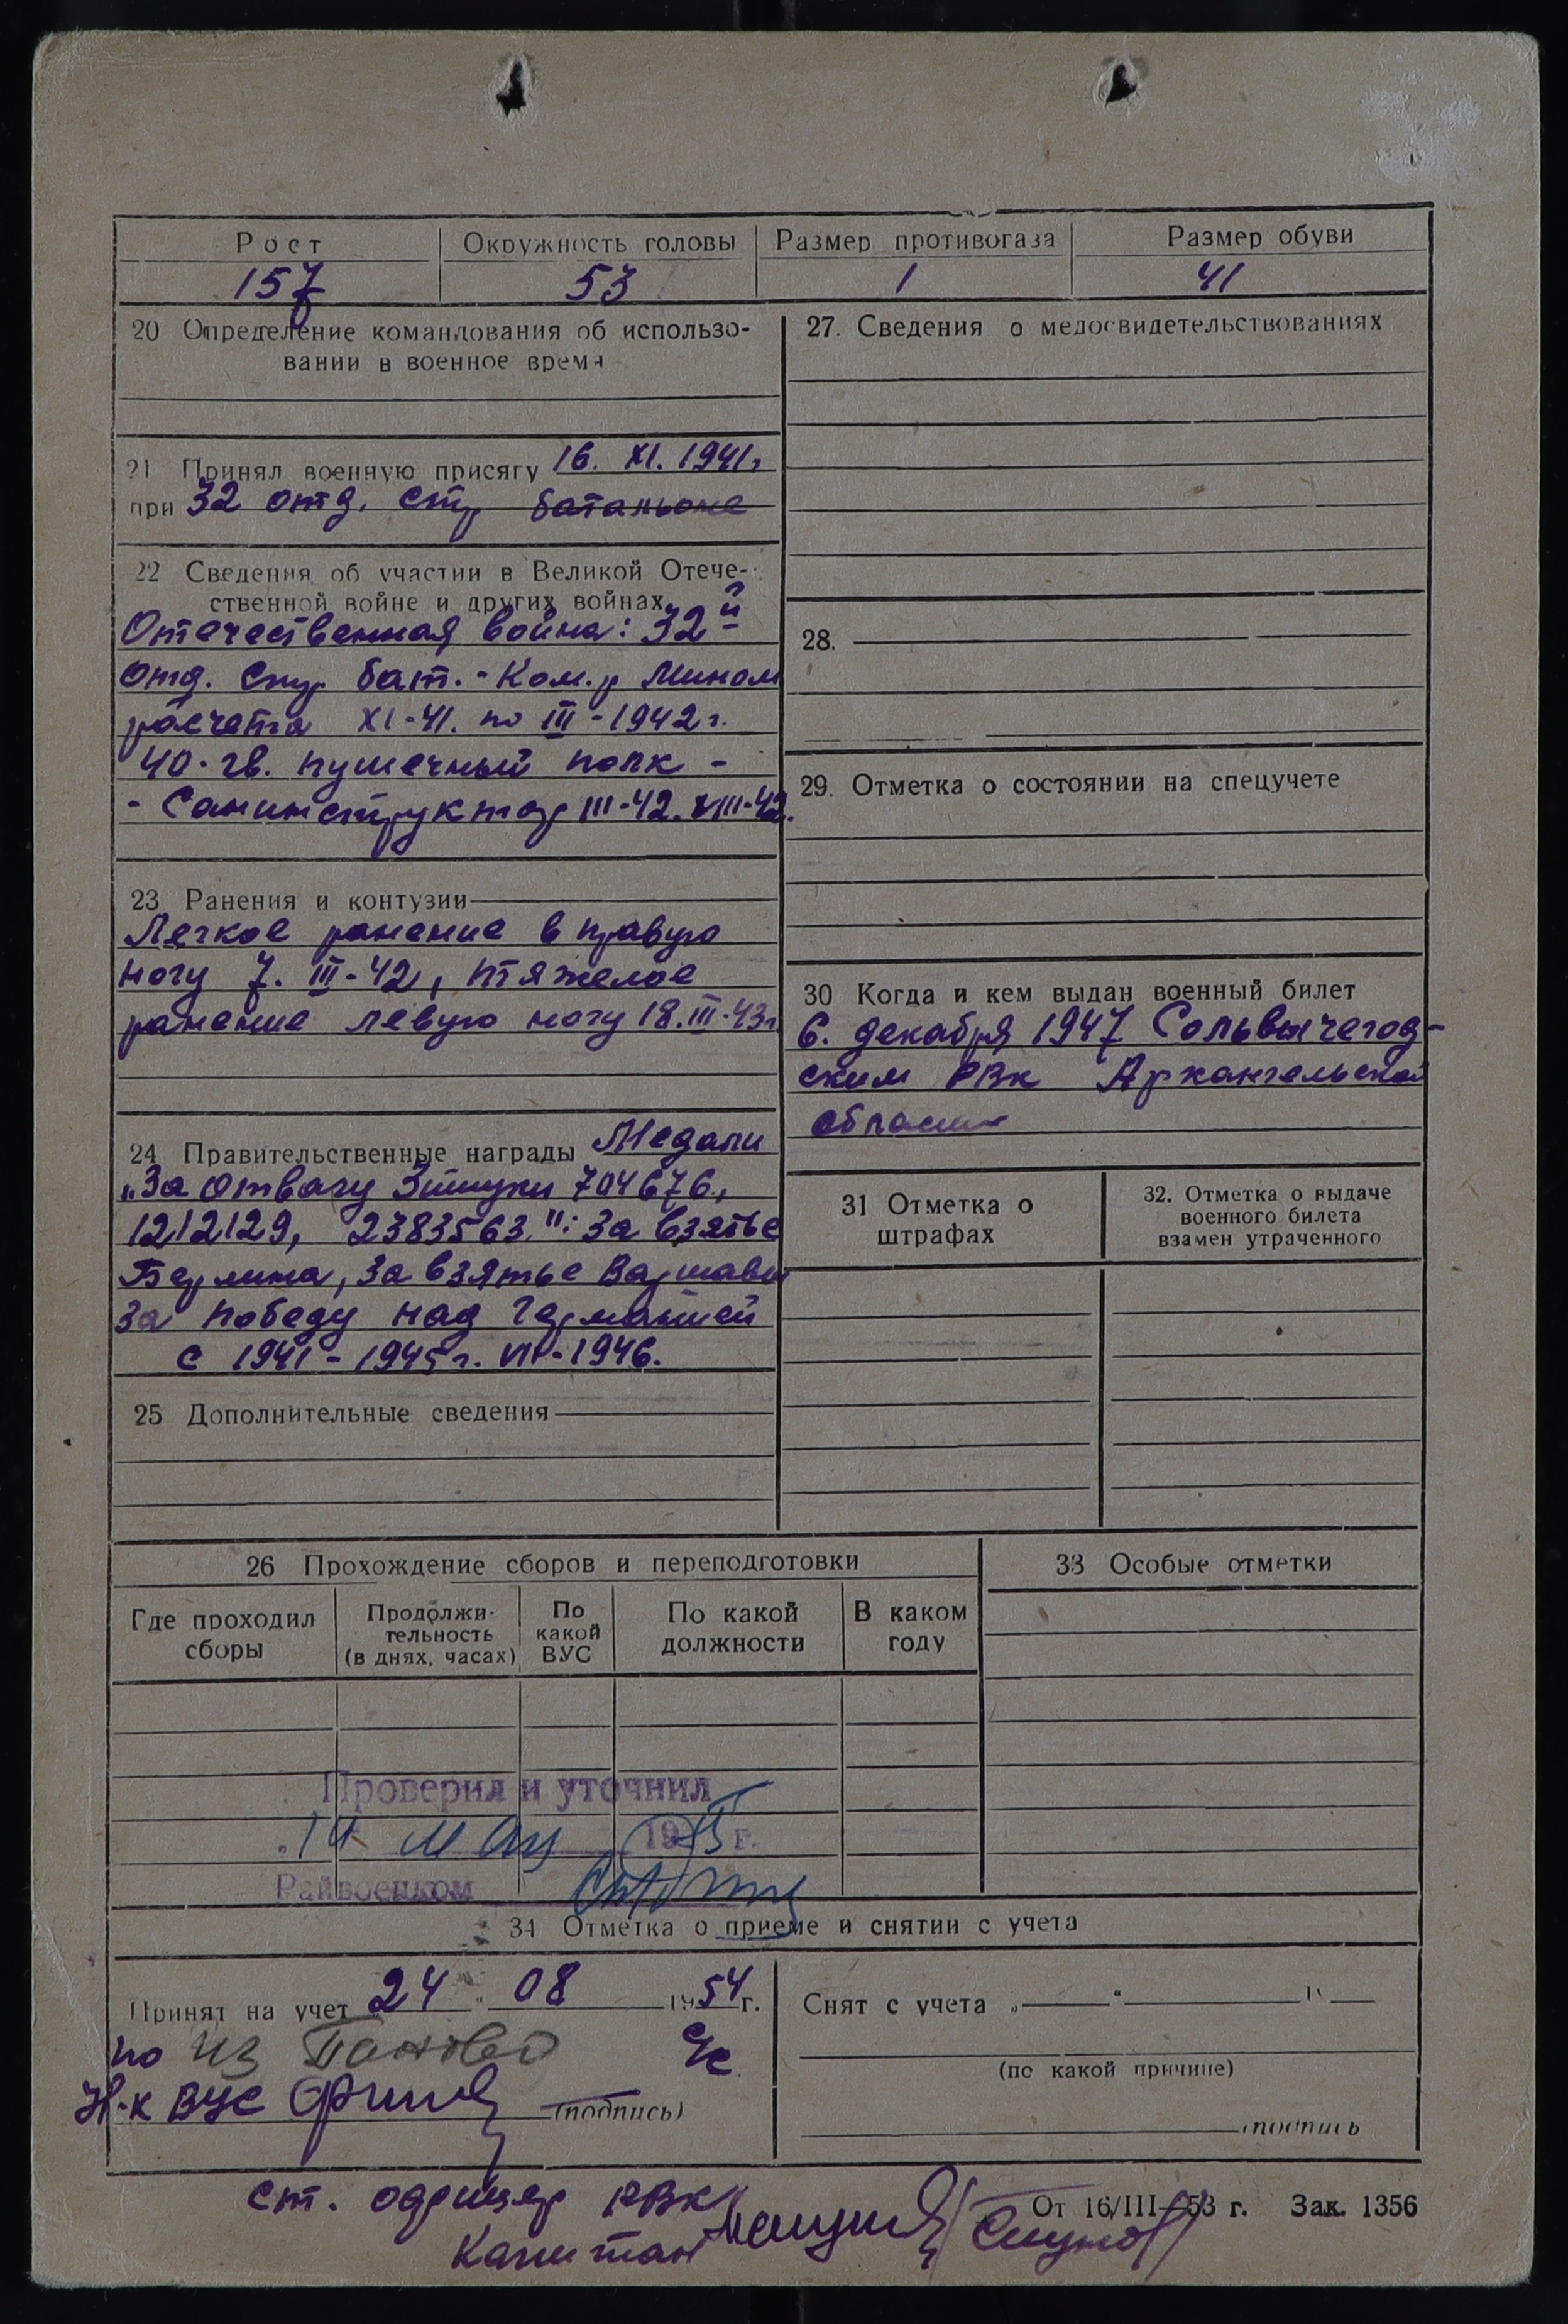 Рост Окружность головы Размер противогаза Размер обуви
157 53 1 41
20 Определение командования об использо-
вании в военное время
21 Принял военную присягу 16. XI. 1941г
при 32 отд. стр батальоне
22 Сведения об участии в Великой Отече-
ственной войне и других войнах
Отечественная война: 32й
отд. стр бат. - Ком.р Мином
расчета XI-41. по III-1942г.
40. гв. пушечный полк -
- Санинструктор III-42. VIII-42.
23 Ранения и контузии
Легкое ранение в правую
ногу 7. III-42, тяжелое
ранение левую ногу 18.III-43г
24 Правительственные награды Медали
"За отвагу 3 штуки 704676,
1212129, 2383563.": За взятье
Берлина, За взятье Варшавы
За победу над Германией
с 1941-1945г. VIII-1946.
25 Дополнительные сведения
27. Сведения о медосвидетельствованиях
28.
29. Отметка о состоянии на спецучете
30 Когда и кем выдан военный билет
6. декабря 1947 Сольвычегод-
ским РВК Архангельской
области
31 Отметка о
штрафах
32. Отметка о выдаче
военного билета
взамен утраченного
26 Прохождение сборов и переподготовки
Где проходил
сборы
Продолжи-
тельность
(в днях, часах)
По
какой
ВУС
По какой
должности
В каком
году
33 Особые отметки
Проверил и уточнил
19 г.
Райвоенком
34 Отметка о приеме и снятии с учета
Принят на учет 24 " 08 1954 г.
по из Паново
Н-к ВУС
(подпись)
Снят с учета „ “ 19
(по какой причине)
подпись
ст. офицер РВК
Капитан
От 16/III—53 г. Зак. 1356